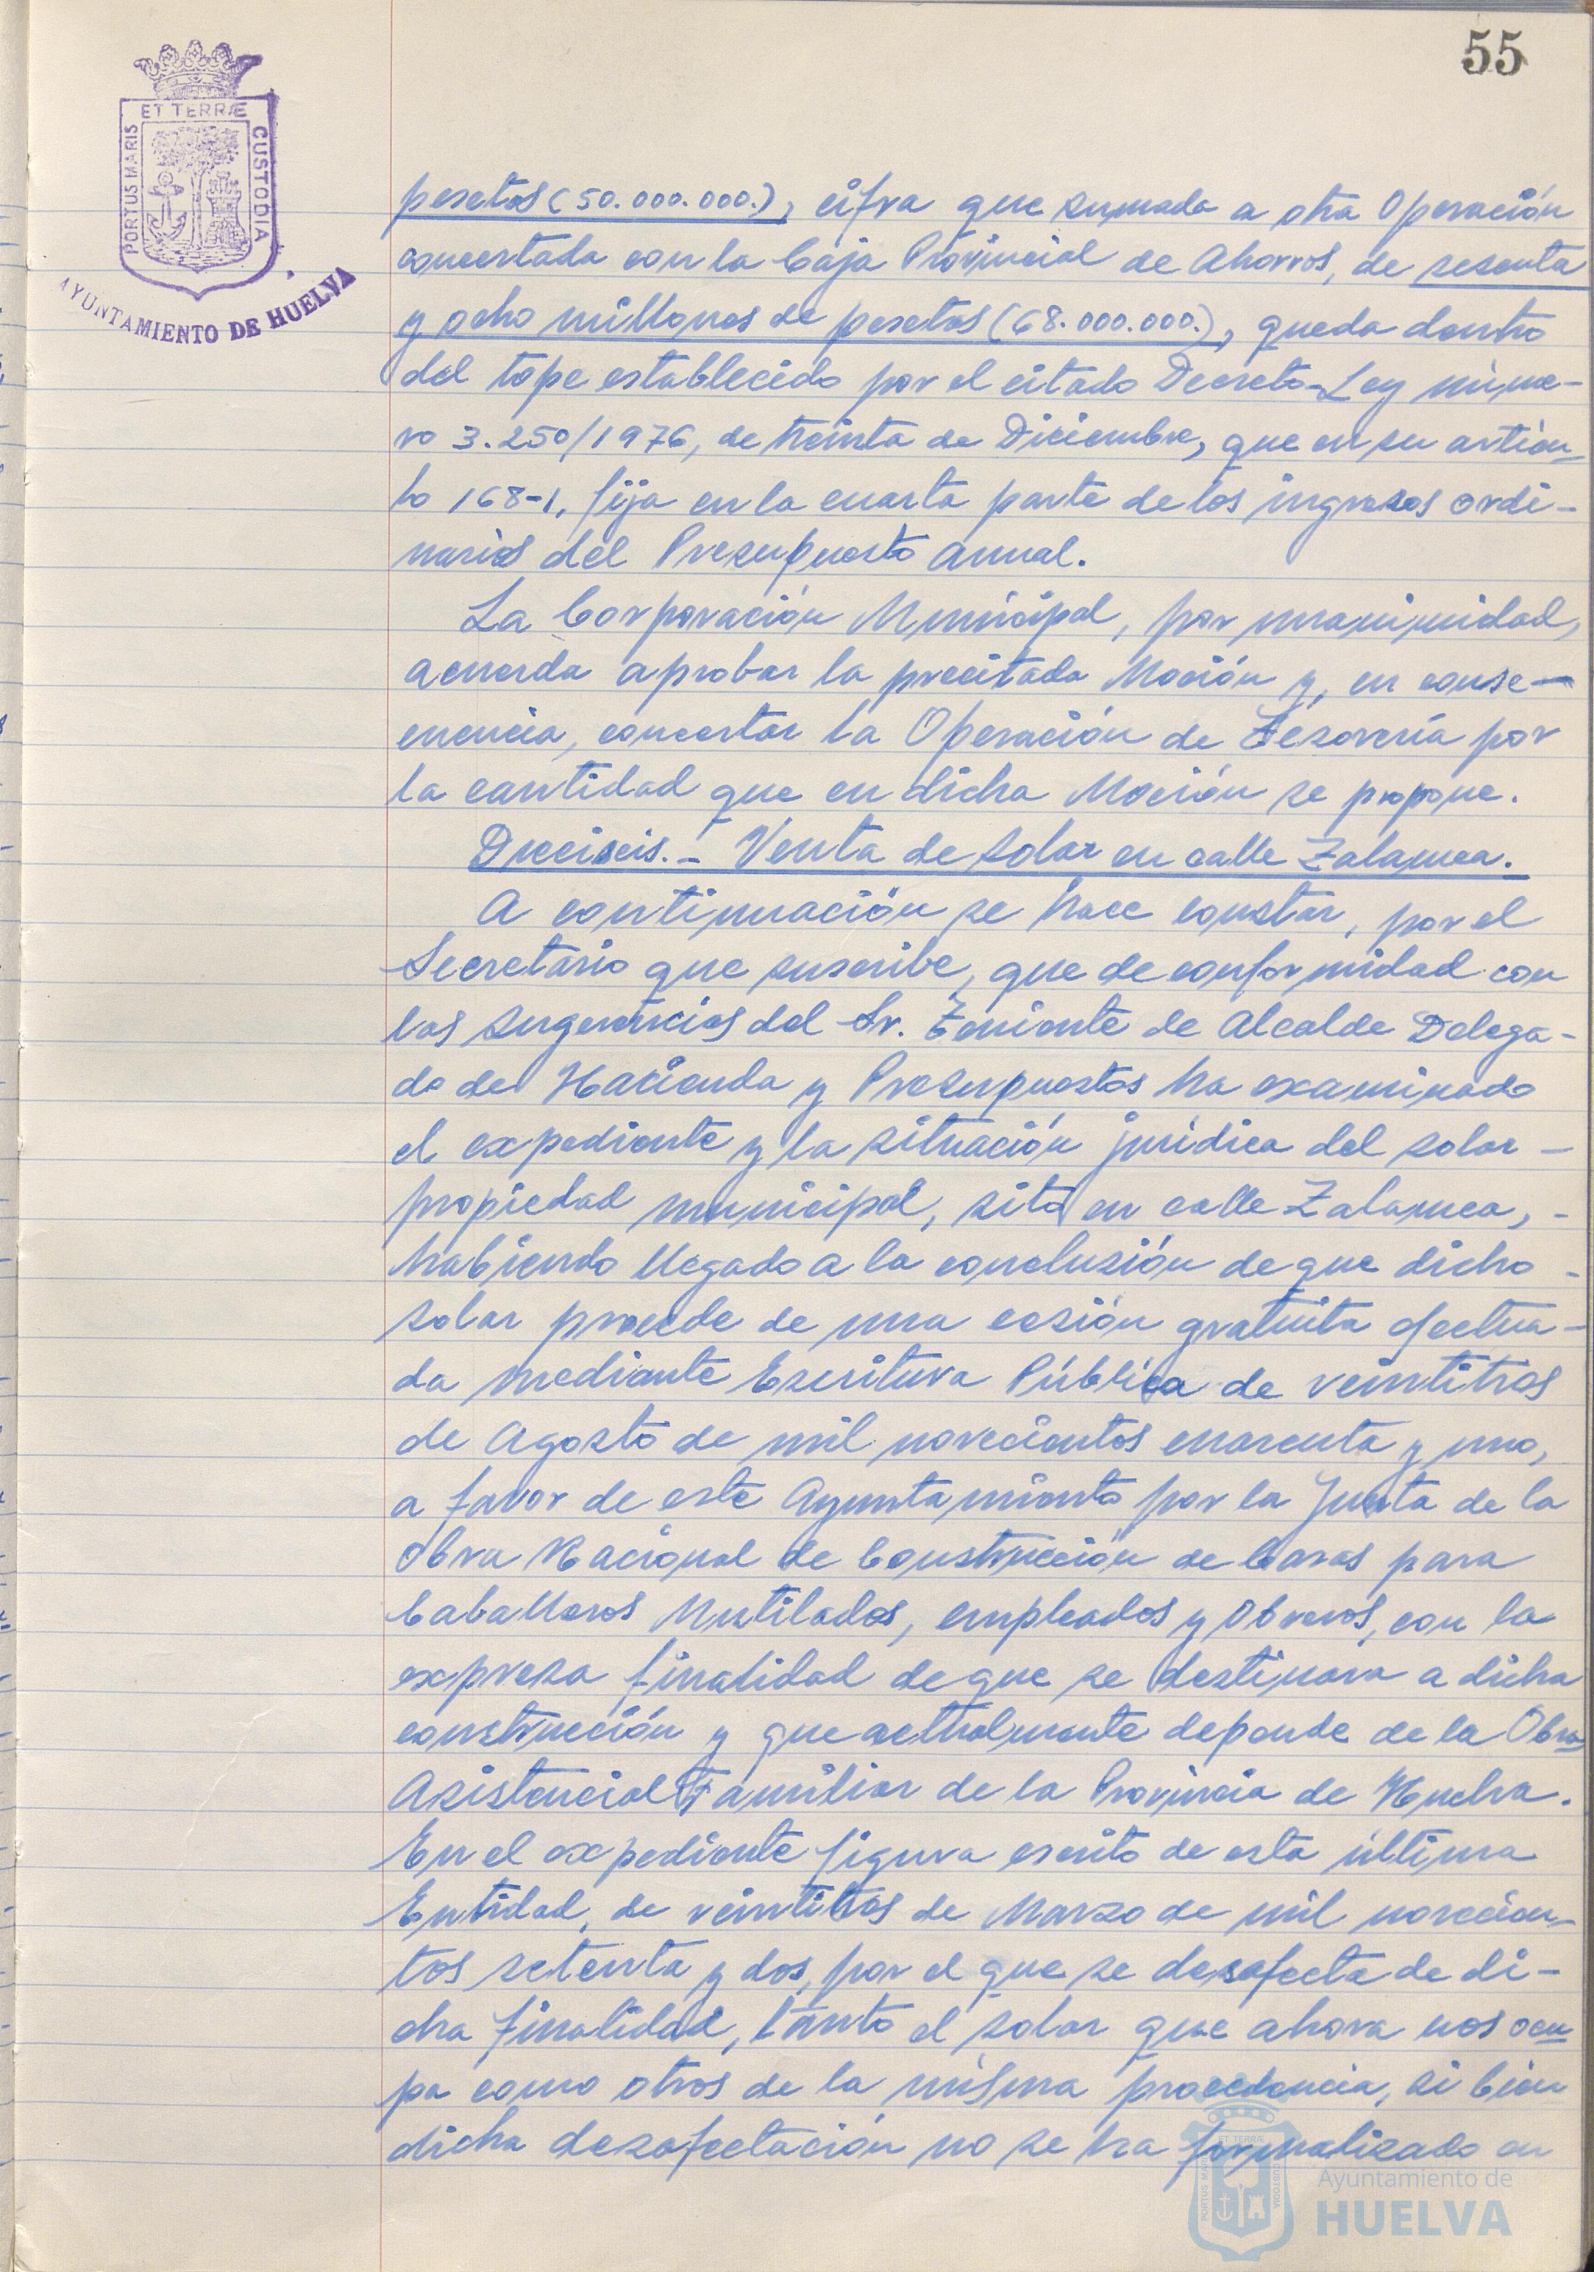 55
ET TERRÆ
PORTUS MARIS
CUSTODIA
AYUNTAMIENTO DE HUELVA
pesetas (50.000.000.), cifra que sumada a otra Operación
concertada con la Caja Provincial de Ahorros, de sesenta
y ocho millones de pesetas (68.000.000.), queda dentro
del tope establecido por el citado Decreto-Ley núme-
ro 3.250/1976, de treinta de Diciembre, que en su artícu-
lo 168-1, fija en la cuarta parte de los ingresos ordi-
narios del Presupuesto anual.
La Corporación Municipal, por unanimidad,
acuerda aprobar la precitada Moción y, en conse-
cuencia, concertar la Operación de Tesorería por
la cantidad que en dicha Moción se propone.
Dieciseis.- Venta de solar en calle Zalamea.
A continuación se hace constar, por el
Secretario que suscribe, que de conformidad con
las sugerencias del Sr. Teniente de Alcalde Delega-
do de Hacienda y Presupuestos ha examinado
el expediente y la situación jurídica del solar -
propiedad municipal, sito en calle Zalamea, -
habiendo llegado a la conclusión de que dicho -
solar procede de una cesión gratuita efectua-
da mediante Escritura Pública de veintitres
de Agosto de mil novecientos cuarenta y uno,
a favor de este Ayuntamiento por la Junta de la
Obra Nacional de Construcción de Casas para
Caballeros Mutilados, empleados y Obreros, con la
expresa finalidad de que se destinara a dicha
construcción y que actualmente depende de la Obra
Asistencial Familiar de la Provincia de Huelva.
En el expediente figura escrito de esta última
Entidad, de veintitres de Marzo de mil novecien-
tos setenta y dos, por el que se desafecta de di-
cha finalidad, tanto el solar que ahora nos ocu-
pa como otros de la misma procedencia, si bien
dicha desafectación no se ha formalizado en
ET TERRÆ
PORTUS MARIS
CUSTODIA
Ayuntamiento de
HUELVA